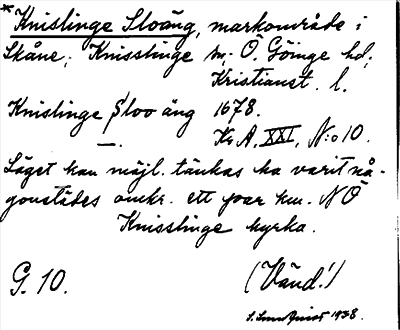 * Knislinge Sloäng, markområde i
Skåne; Knisslinge sn; Ö. Göinge hd;
Kristianst. l.
Knislinge Sloo äng 1678.
Kr. A, XXI, N:o 10.
Läget kan möjl. tänkas ha varit nå-
gonstädes omkr. ett par km. NÖ
Knisslinge kyrka.
G. 10.
(Vänd!)
1938.